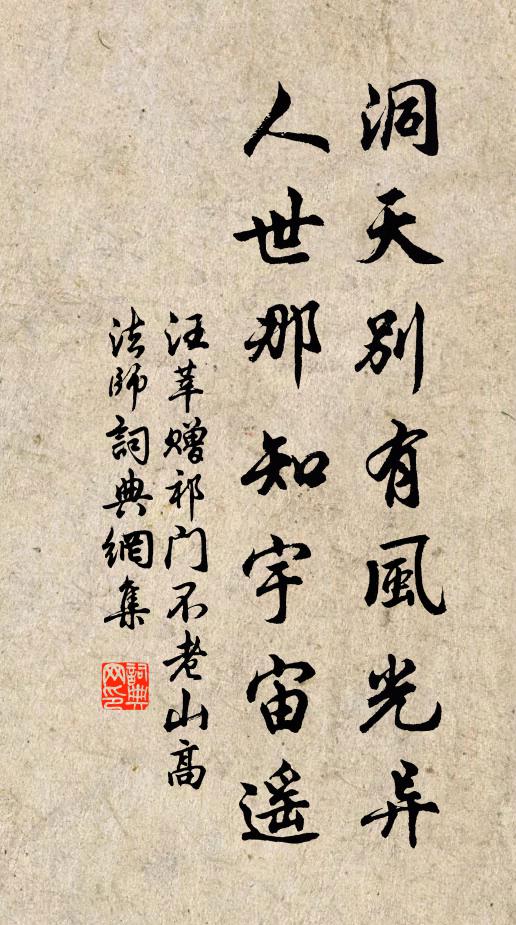 洞天別有風光异
人世那知宇宙遥
汪莘赠祁门不老山高
法師詞典網集
詞典网印